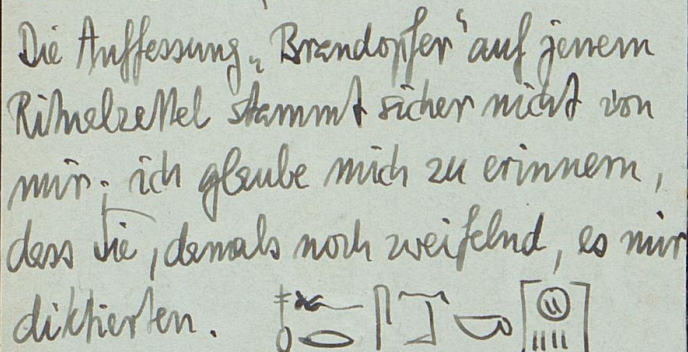 Die Auffassung „Brandopfer“ auf jenem
Ritualzettel stammt sicher nicht von
mir; ich glaube mich zu erinnern,
dass Sie, damals noch zweifelnd, es mir
diktierten.